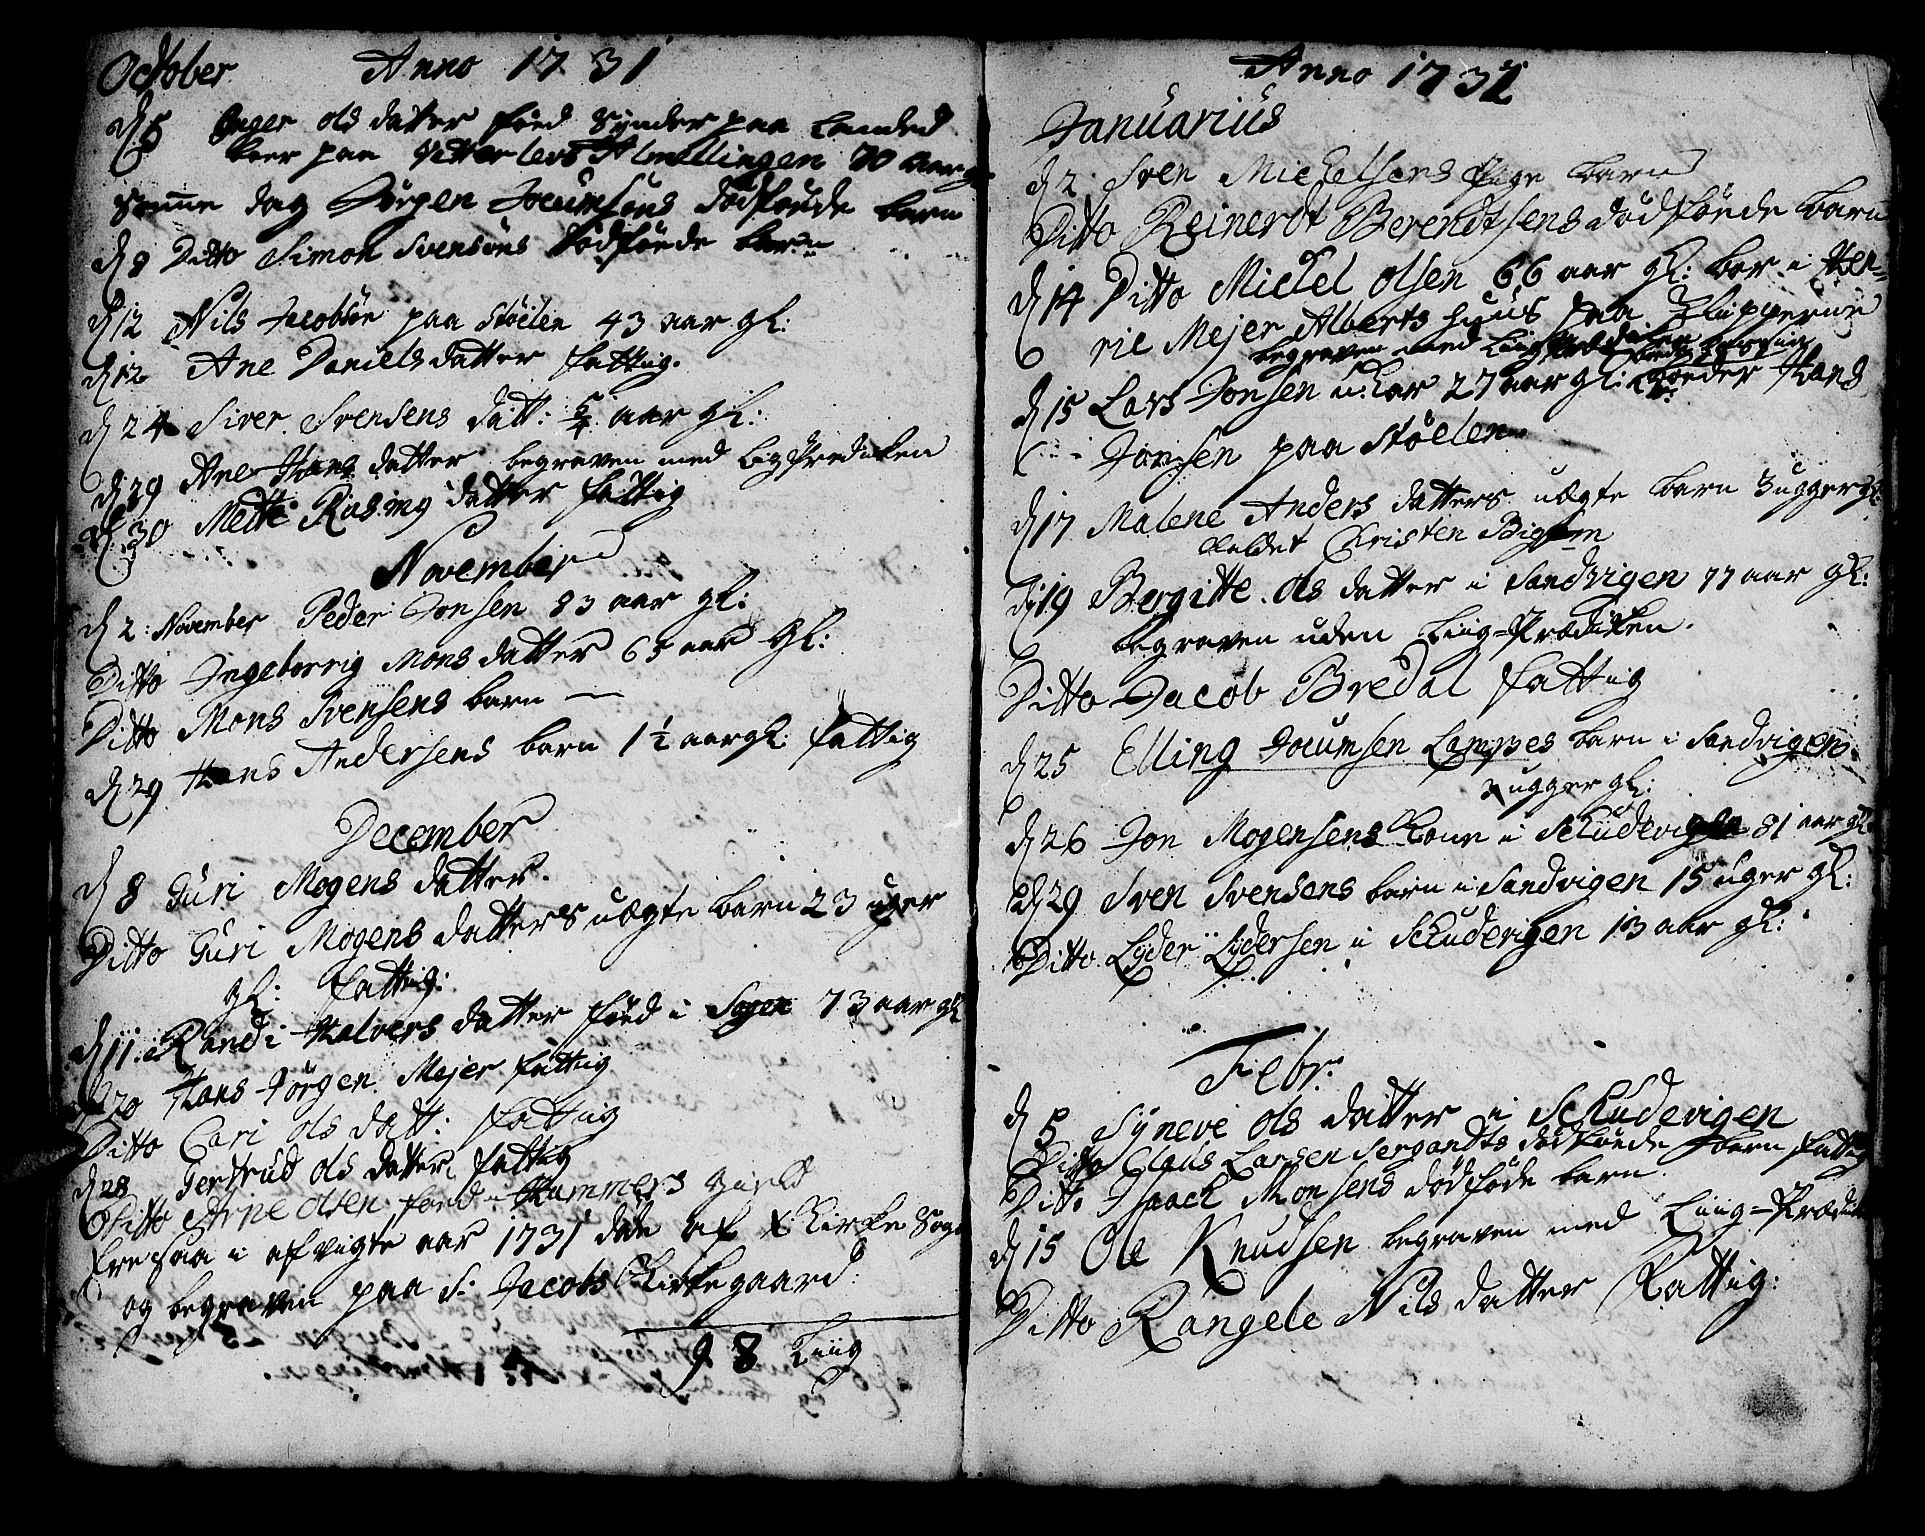 October Anno 1731
d 5 Inger ols datter föed Synder paa Landed
boer paa Almellingen 70 aar gl
Samme dag Jörgen Joumsöns dödföede barn
d 8 Ditto Simon Svensöns dödföede barn
d 12 Nils Jacobsön paa Stöelen 43 aar gl:
d 12 Ane Daniels datter fattig.
d 24 Siver Svensens datt: 5/4 aar gl:
d 29 Ane Hans datter begraven med Lig Predicken
d 30 Mette Rasmq datter fattig
November
d 2 November Peder Jonsen 83 aar gl:
Ditto Ingeborrig Mons datter 65 aar gl:
Ditto Mons Svensens barn —
d 29 Hans Andersens barn 1½ aar gl: fattig
December
d 8 Guri Mogens datter.
Ditto Guri Mogens datters uægte barn 23 uger
gl: fattig:
d 11 Randi Halvers datter föed i Sogen 73 aar gl
d 20 Hans Jörgen Mejer fattig
Ditto Cari ols datt: fattig
d 28 Gertrud ols datter fattig
Ditto Arne Olsen föed i Hammers gield
Er saa i afvigte aar 1731 döde af X Kirke Sogn
og begraven paa S: Jacobs Kirkegaard:
98 Liig
Anno 1732
Januarius
d 2 Sven Mickelsens Pige barn
Ditto Reinerdt Berendtsens dödföede barn
d 14 Ditto Mickel Olsen 66 aar gl: bor i Hen-
ric Mejer Alberts huus paa Klipperne
begraven med Liig Prædicken
d 15 Lars Jonsen u: Kar 27 aar gl: broeder Hans
Jonsen paa Stöelen
d 17 Malene Anders datters uægte barn 3 ugger gl:
Kaldet Christen
d 19 Bergitte ols datter i Sandvigen 77 aar gl:
begraven uden Liig=Prædicken.
Ditto Jacob Bredal fattig
d 25 Elling Joumsen Lampes barn i Sandvigen
ugger gl:
d 26 Jon Mogensens Kone i Skudevigen 81 aar gl
d 29 Sven Svensens barn i Sandvigen 15 uger gl:
Ditto Lyder Lydersen i Skudevigen 13 aar gl:
Febr:
d 5 Syneve ols datter i Skudevigen
Ditto Claus Larsen Sergandts dödföede barn fattig
Ditto Isaack Monsens dödföde barn
d 15 Ole Knudsen begraven med Liig=Prædick
Ditto Rangele Nils datter Fattig: